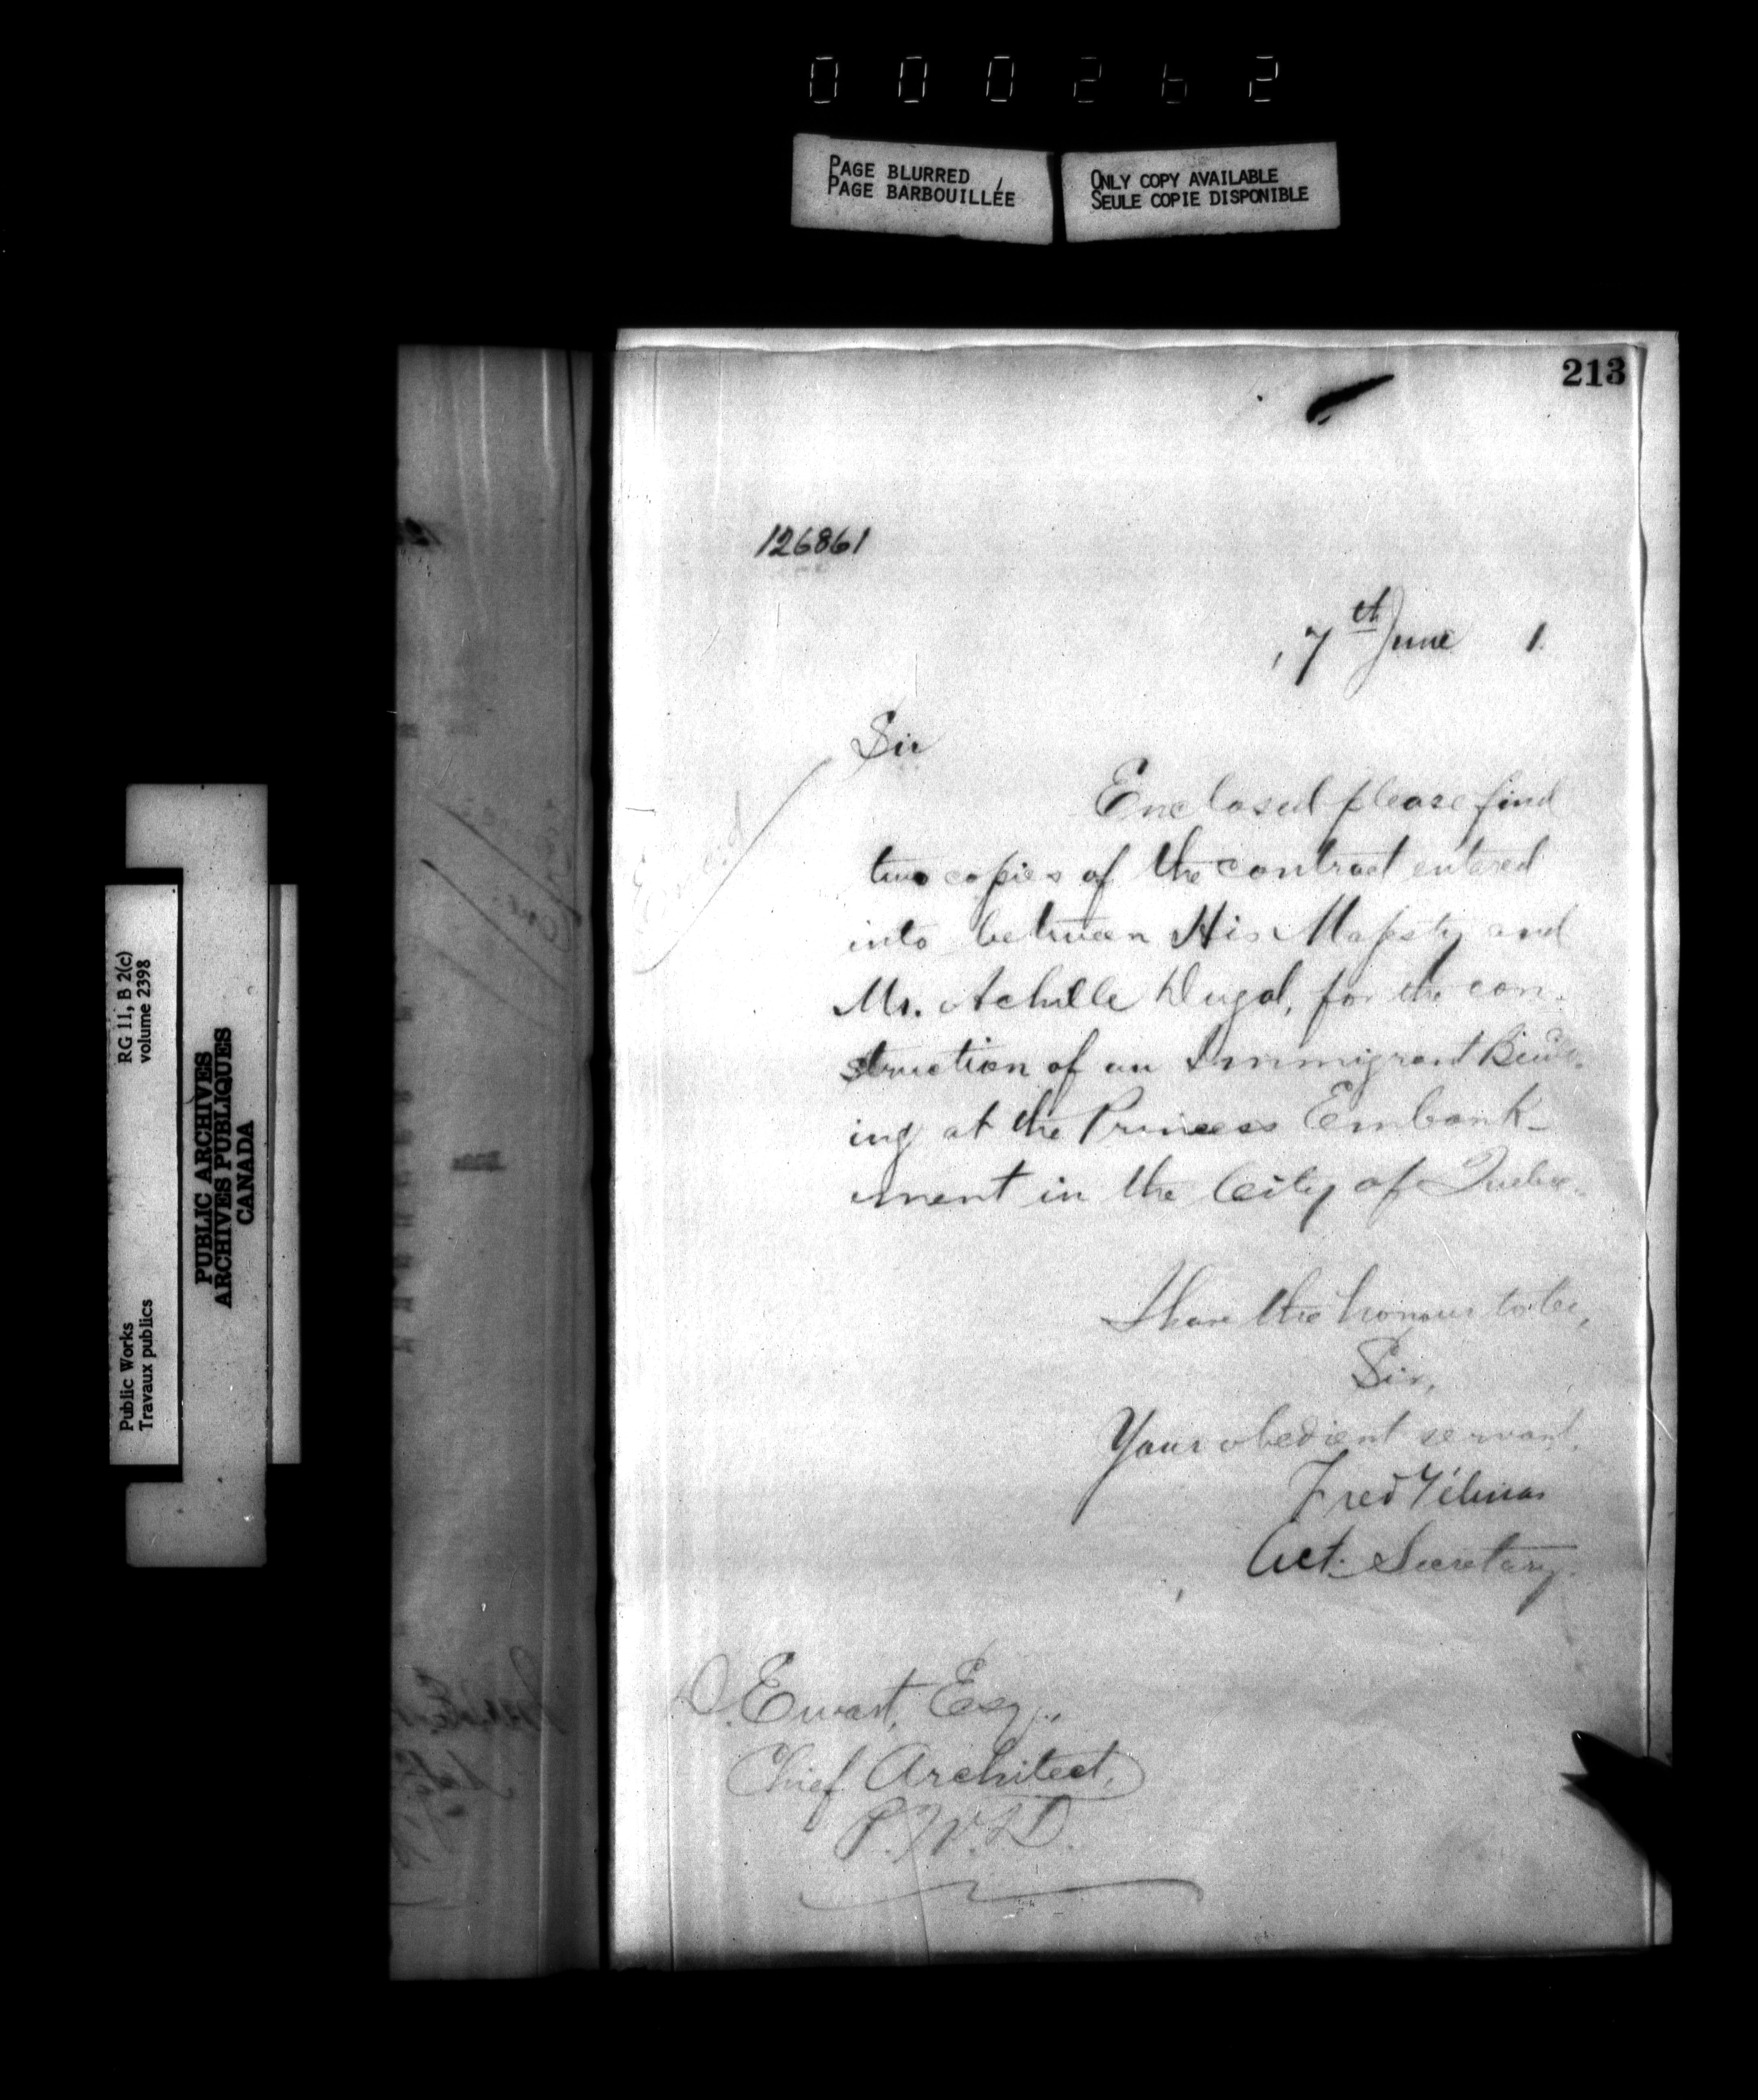 000262
PAGE BLURRED
PAGE BARBOUILLÉE
ONLY COPY AVAILABLE
SEULE COPIE DISPONIBLE
213
126861
7th June 1
Sir
Enclosed please find
two copies of the contract entered
into between His Majesty and
Mr. Achille Dugal, for the con-
struction of an Immigrant Build-
ing at the Princess Embank-
ment in the City of Quebec.
I have the honour to be,
Sir,
Your obedient servant,
Fred Gélinas
Act. Secretary.
D. Ewart, Esq.,
Chief Architect,
P.W.D.
RG 11, B 2(c)
volume 2398
Public Works
Travaux publics
PUBLIC ARCHIVES
ARCHIVES PUBLIQUES
CANADA